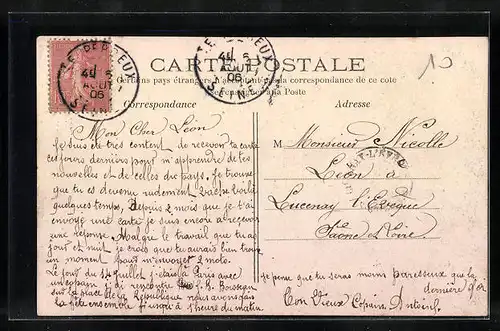 LE PERREUX
AOUT
06
SEINE
LE PERREUX
06
SEINE
CARTE POSTALE
Certains pays étrangers n'acceptent pas la correspondance de ce côté
à la Poste
Correspondance
Adresse
10
Mon Cher Léon
Je suis été très content de recevoir ta carte
ces jours derniers pour m'apprendre de tes
nouvelles et de celles du pays. Je trouve
que tu es devenu rudement
quelques temps, Depuis 2 mois que je t'ai
envoyé une carte je suis encore a recevoir
une réponse. Malgré le travail que tu as
jour et nuit je crois que tu aurais bien trouvé
un moment pour m'envoyer 2 mots.
Le jour du 14 juillet j'étais à Paris avec
un copain j'ai rencontré
sur la place de la République nous avons
la fête ensemble jusqu'à 1 heure du matin.
M Monsieur Nicolle
Léon à
Lucenay l'Evêque
Saône et Loire
LUCENAY-L'EVÊQUE
Je pense que tu seras moins paresseux que la
dernière fois
Ton Vieux Copain Antoine